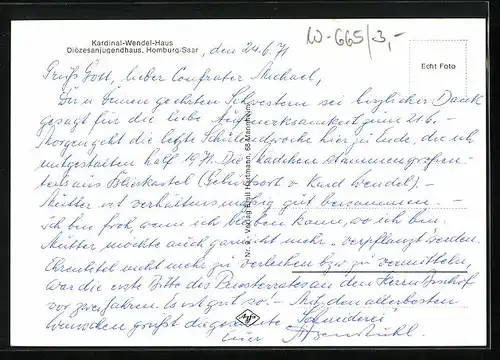 W-665/3,-
Kardinal-Wendel-Haus
Diözesanjugendhaus, Homburg/Saar, den 24.6.71
Echt Foto
Grüß Gott, lieber Confrater Michael,
Dir u. Deinen geehrten Schwestern sei herzlicher Dank
gesagt für die liebe Aufmerksamkeit zum 21.6. -
Morgen geht die letzte Schulendwoche hier zu Ende, die ich
mitgestalten half 1971. Die Mädchen stammen großen-
teils aus Blieskastel (Geburtsort v. Kard Wendel). -
Mutter ist verhältnismäßig gut beisammen. -
Ich bin froh, wenn ich bleiben kann, wo ich bin.
Mutter möchte auch garnicht mehr "verpflanzt" werden.
Ehrentitel nicht mehr zu verleihen bzw zu vermitteln,
war die erste Bitte des Priesterrates an den Herrn Bischof
vor zwei Jahren. Es ist gut so. - Mit den allerbesten
Wünschen grüßt die gesamte "Schneiderei"
Euer
Nr. 8 - Verlag Emil Hartmann, 68 Mannheim
Agfa